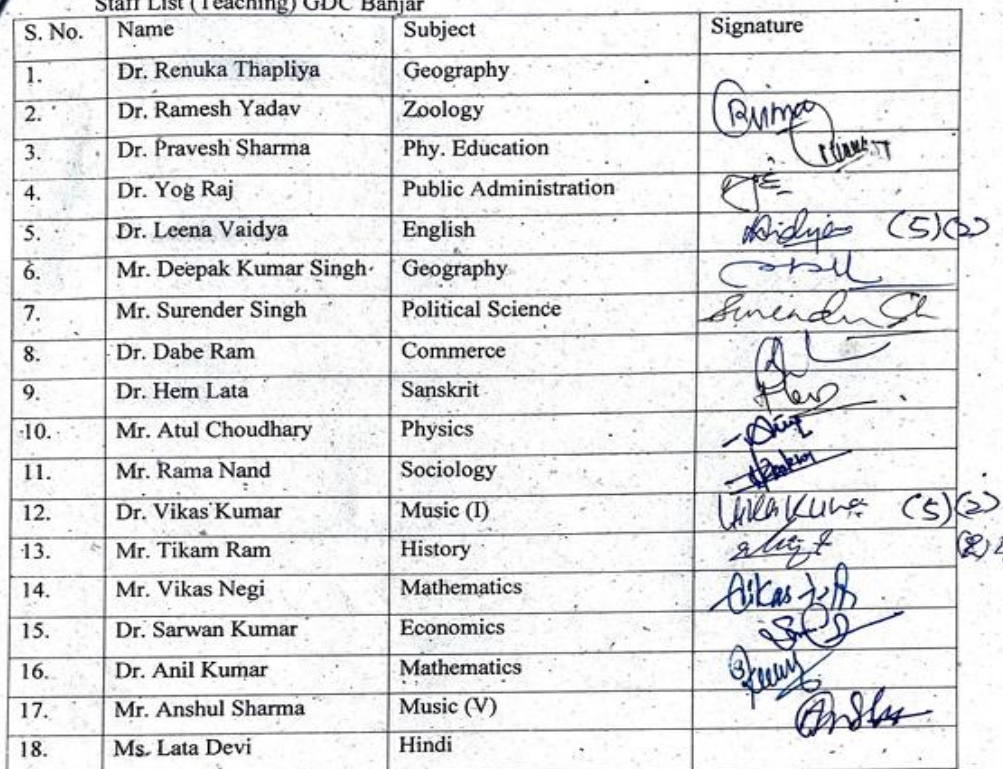 Staff List (Teaching) GDC Banjar
S. No. Name Subject Signature
1. Dr. Renuka Thapliya Geography
2. Dr. Ramesh Yadav Zoology
3. Dr. Pravesh Sharma Phy. Education
4. Dr. Yog Raj Public Administration
5. Dr. Leena Vaidya English (5)(2)
6. Mr. Deepak Kumar Singh Geography
7. Mr. Surender Singh Political Science
8. Dr. Dabe Ram Commerce
9. Dr. Hem Lata Sanskrit
10. Mr. Atul Choudhary Physics
11. Mr. Rama Nand Sociology
12. Dr. Vikas Kumar Music (I) (5)(2)
13. Mr. Tikam Ram History
14. Mr. Vikas Negi Mathematics
15. Dr. Sarwan Kumar Economics
16. Dr. Anil Kumar Mathematics
17. Mr. Anshul Sharma Music (V)
18. Ms. Lata Devi Hindi